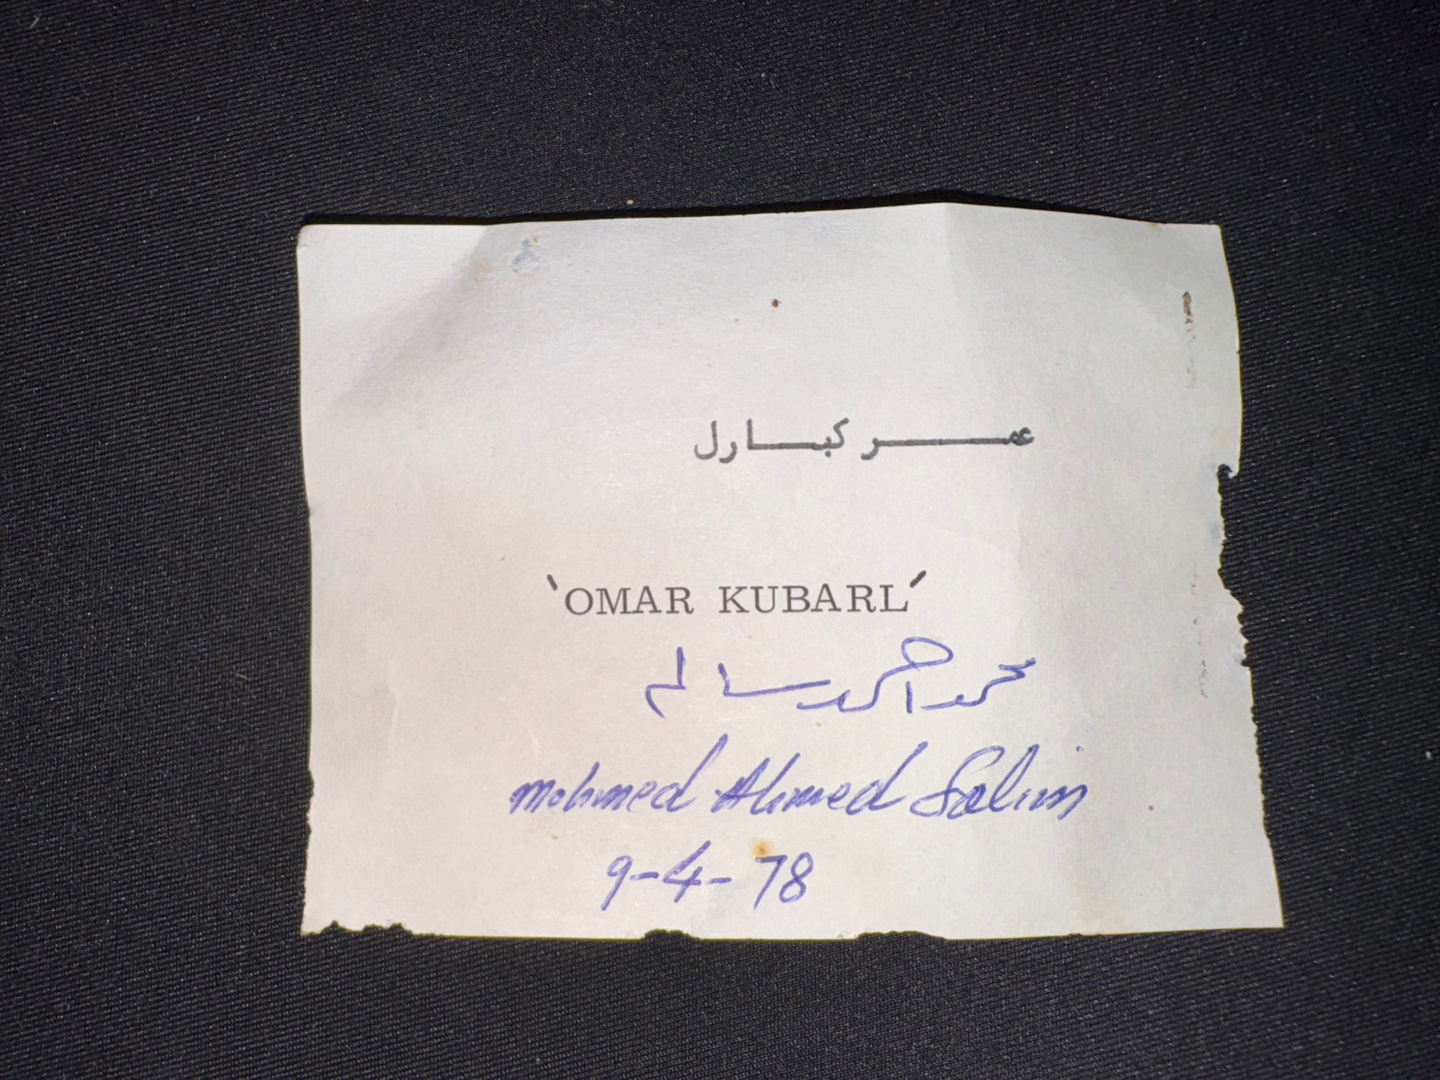 عمر كبارل
'OMAR KUBARL'
محمد احمد سالم
Mohmed Ahmed Salim
9-4-78